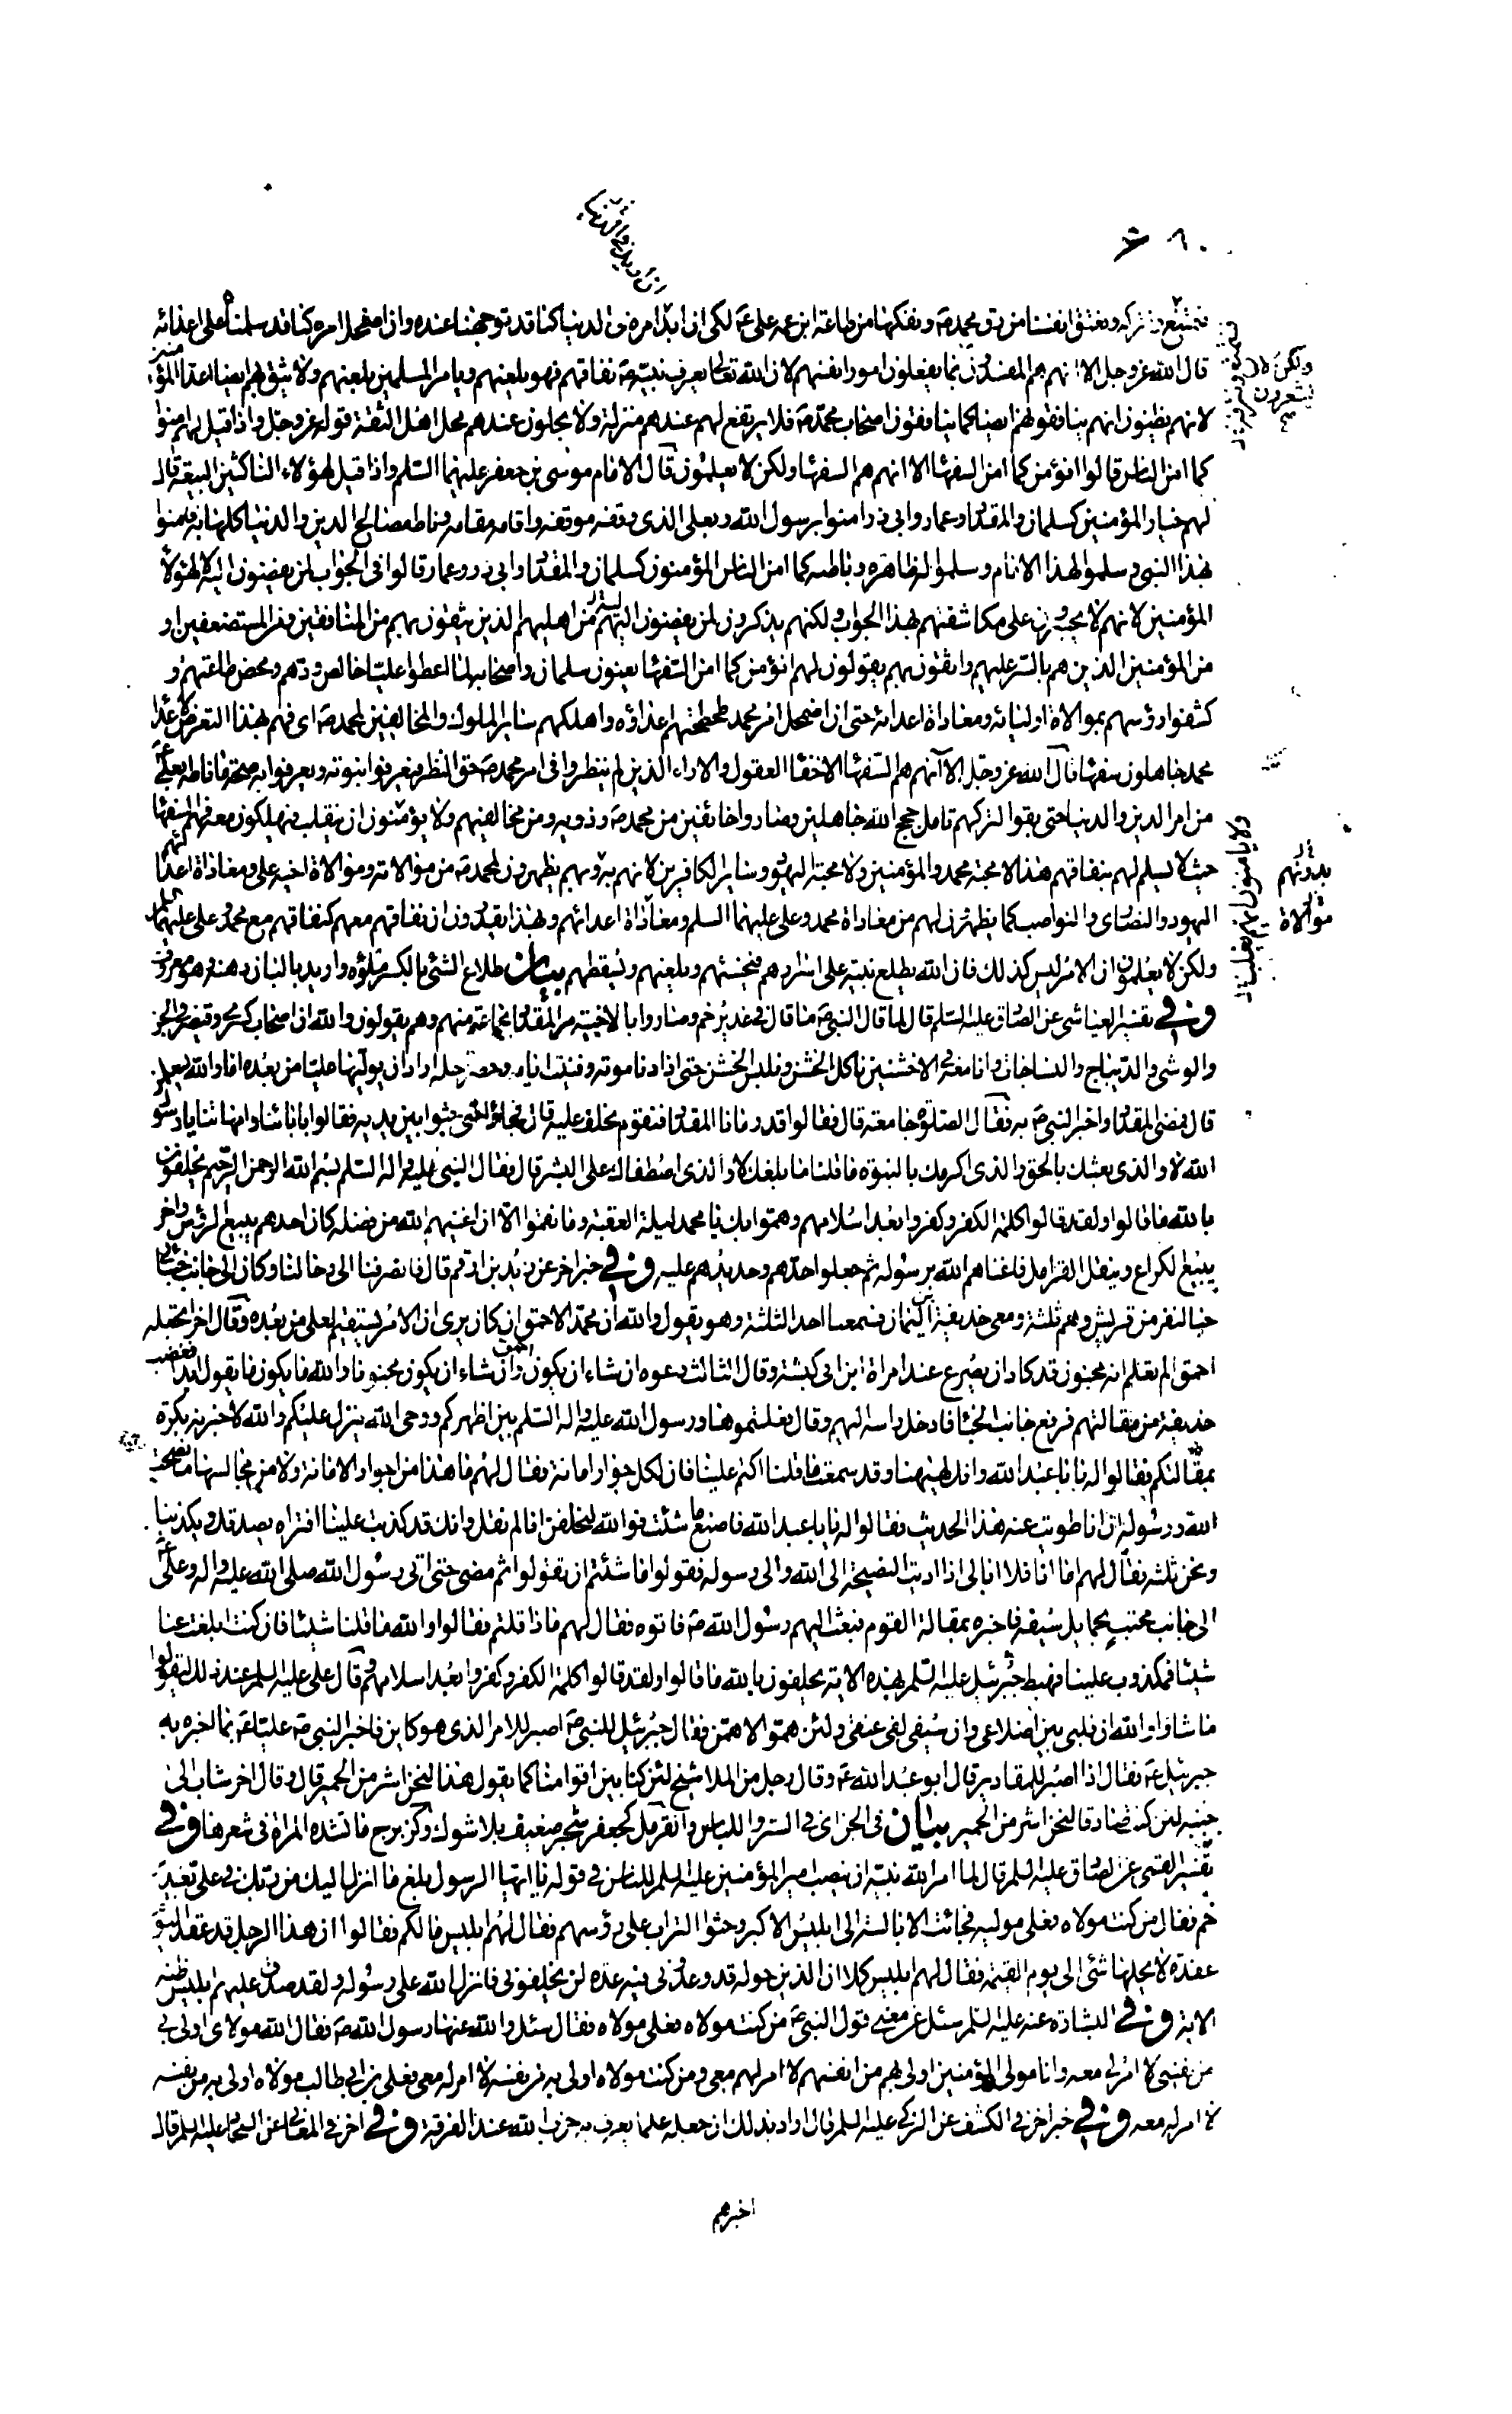 ٦٠
فنتمتع بتركه ونعتق انفسنا من رق محمد ص ونفكها من طاعة ابن عمه على ع لكى ان ابدا امره فى الدنيا كنا قد توجهنا عنده وان اضمحل امره كنا قد سلمنا على اعدائه
قال الله عز وجل الا انهم هم المفسدون بما يفعلون امور انفسهم لان الله تعالى يعرف نبيه ص نفاقهم فهو يلعنهم ويامر المسلمين بلعنهم ولا يثق بهم ايضا اعداء المؤمنين
لانهم يظنون انهم ينافقونهم ايضا كما ينافقون اصحاب محمد ص فلا يرتفع لهم عندهم منزلة ولا يحلون عندهم محل اهل الثقة قوله عز وجل واذا قيل لهم امنوا
كما امن الناس قالوا انؤمن كما امن السفهاء الا انهم هم السفهاء ولكن لا يعلمون قال الامام موسى بن جعفر عليهما السلم واذا قيل لهؤلاء الناكثين البيعة قال
لهم خيار المؤمنين كسلمان والمقداد وعمار وابى ذر امنوا برسول الله وبعلى الذى وقفه موقفه واقامه مقامه وناط مصالح الدين والدنيا كلها به فامنوا
بهذا النبى وسلموا لهذا الامام وسلموا لظاهره وباطنه كما امن الناس المؤمنون كسلمان والمقداد وابى ذر وعمار قالوا فى الجواب لمن يفضون اليه لا لهؤلاء
المؤمنين لانهم لا يجسرون على مكاشفتهم بهذا الجواب ولكنهم يذكرون لمن يفضون اليهم من اهليهم الذين يثقون بهم من المنافقين ومن المستضعفين او
من المؤمنين الذين هم بالستر عليهم واثقون بهم يقولون لهم انؤمن كما امن السفهاء يعنون سلمان واصحابه لما اعطوا عليا خالص ودهم ومحض طاعتهم و
كشفوا رؤسهم بموالاة اوليائه ومعاداة اعدائه حتى ان اضمحل امر محمد طحطحهم اعداؤه واهلكهم سائر الملوك والمخالفين لمحمد ص اى فهم بهذا التعرض لاعداء
محمد جاهلون سفهاء قال الله عز وجل الا انهم هم السفهاء الاخفاء العقول والاراء الذين لم ينظروا فى امر محمد ص حق النظر فيعرفوا نبوته ويعرفوا به صحة ما ناطه بعلى ع
من امر الدين والدنيا حتى بقوا لتركهم تامل حجج الله جاهلين وصاروا خائفين من محمد ص وذويه ومن مخالفيهم ولا يؤمنون ان ينقلب فيهلكون معه فهم السفهاء
حيث لا يسلم لهم بنفاقهم هذا لا محبة محمد والمؤمنين ولا محبة اليهود وسائر الكافرين لانهم به وبهم يظهرون لمحمد ص من موالاته وموالاة اخيه على ومعاداة اعدائهم
اليهود والنصارى والنواصب كما يظهرون لهم من معاداة محمد وعلى عليهما السلم ومعاداة اعدائهم وبهذا يقدرون ان نفاقهم معهم كنفاقهم مع محمد وعلى عليهما
ولكن لا يعلمون ان الامر ليس كذلك فان الله يطلع نبيه على اسرارهم فيخسئهم ويلعنهم ويسقطهم بيان طلاع الشئ بالكسر ملؤه واريد بالباز دهنة وهو معروف
وفى تفسير العياشى عن الصادق عليه السلم قال لما قال النبى ص ما قال فى غدير خم وصاروا بالاخبية مر المقداد بجماعة منهم وهم يقولون والله ان اصحاب كسرى وقيصر فى الخز
والوشى والديباج والنساجات وانا معه فى الاخشنين ناكل الخشن ونلبس الخشن حتى اذا دنا موته وفنيت ايامه وحضر اجله اراد ان يوليها عليا من بعده اما والله ليعلمن
قال فمضى المقداد واخبر النبى ص به فقال الصلوة جامعة قال فقالوا قد رمانا المقداد فنقوم نحلف عليه قال فجاؤا حتى جثوا بين يديه فقالوا بابائنا وامهاتنا يا رسول
الله لا والذى بعثك بالحق والذى اكرمك بالنبوة ما قلنا ما بلغك لا والذى اصطفاك على البشر قال فقال النبى عليه واله السلم بسم الله الرحمن الرحيم يحلفون
بالله ما قالوا ولقد قالوا كلمة الكفر وكفروا بعد اسلامهم وهموا بك يا محمد ليلة العقبة وما نقموا الا ان اغنيهم الله من فضله كان احدهم يبيع الرؤس واخر
يبيع الكراع ويفتل القرامل فاغناهم الله برسوله ثم جعلوا حدهم وحديدهم عليه وفى خبر اخر عن زيد بن ارقم قال فانصرفنا الى رحالنا وكان الى جانب خبائى
خباء لنفر من قريش وهم ثلثة ومعى حذيفة بن اليمان فسمعنا احد الثلثة وهو يقول والله ان محمدا لاحمق ان كان يرى ان الامر يستقيم لعلى من بعده وقال اخر اتجعله
احمق الم تعلم انه مجنون قد كاد ان يصرع عند امراة ابن ابى كبشة وقال الثالث دعوه ان شاء ان يكون احمق وان شاء ان يكون مجنونا والله ما يكون ما يقول ابدا فغضب
حذيفة من مقالتهم فرفع جانب الخباء فادخل راسه اليهم وقال فعلتموها ورسول الله عليه واله السلم بين اظهركم ووحى الله ينزل عليكم والله لاخبرنه بكرة
بمقالتكم فقالوا له يا ابا عبد الله وانك لههنا وقد سمعت ما قلنا اكتم علينا فان لكل جوار امانة فقال لهم ما هذا من جوار الامانة ولا من مجالسها ما نصحت
الله ورسوله ان انا طويت عنه هذا الحديث فقالوا له يا ابا عبد الله فاصنع ما شئت فوالله لنحلفن انا لم نقل وانك قد كذبت علينا افتراه يصدقك ويكذبنا
ونحن ثلثة فقال لهم اما انا فلا ابالى اذا اديت النصيحة الى الله والى رسوله فقولوا ما شئتم ان تقولوا ثم مضى حتى اتى رسول الله صلى الله عليه واله وعلى ع
الى جانب محتب بحمايل سيفه فاخبره بمقالة القوم فبعث اليهم رسول الله ص فاتوه فقال لهم ماذا قلتم فقالوا والله ما قلنا شيئا فان كنت ابلغت عنا
شيئا فمكذوب علينا فهبط جبرئيل عليه السلم بهذه الاية يحلفون بالله ما قالوا ولقد قالوا كلمة الكفر وكفروا بعد اسلامهم وقال على عليه السلم عند ذلك ليقولوا
ما شاؤا والله ان قلبى بين اضلاعى وان سيفى لفى عنقى ولئن هموا لاهمن فقال جبرئيل للنبى ص اصبر للامر الذى هو كاين فاخبر النبى ص عليا ع بما اخبره به
جبرئيل ع فقال اذا اصبر للمقادير قال ابو عبد الله ع وقال رجل من الملا شيخ لئن كنا بين اقوامنا كما يقول هذا لنحن اشر من الحمير قال وقال اخر شاب الى
جنبه لئن كنت صادقا لنحن اشر من الحمير بيان فى الخز اى فى الستر واللباس والقرمل كجعفر شجر ضعيف بلا شوك وكزبرج ما تشده المراة فى شعرها وفى
تفسير القمى عن الصادق عليه السلم قال لما امر الله نبيه ان ينصب امير المؤمنين عليه السلم للناس فى قوله يا ايها الرسول بلغ ما انزل اليك من ربك فى على بغدير
خم فقال من كنت مولاه فعلى موليه فجائت الابالسة الى ابليس الاكبر وحثوا التراب على رؤسهم فقال لهم ابليس ما لكم فقالوا ان هذا الرجل قد عقد اليوم
عقدة لا يحلها شئ الى يوم القيمة فقال لهم ابليس كلا ان الذين حوله قد وعدونى فيه عدة لن يخلفونى فانزل الله على رسوله ولقد صدق عليهم ابليس ظنه
الاية وفى البشارة عنه عليه السلم سئل عن معنى قول النبى ص من كنت مولاه فعلى مولاه فقال سئل والله عنها رسول الله ص فقال الله مولاى اولى بى
من نفسى لا امر لى معه وانا مولى المؤمنين اولى بهم من انفسهم لا امر لهم معى ومن كنت مولاه اولى به من نفسه لا امر له معى فعلى بن ابى طالب مولاه اولى به من نفسه
لا امر له معه وفى خبر اخر فى الكشف عن الزكى عليه السلم قال اراد بذلك ان جعله علما يعرف به حزب الله عند الفرقة وفى اخر فى المعانى عن السجاد عليه السلم قال
ولكن لا
يشعرون
موالاة
اخبرهم